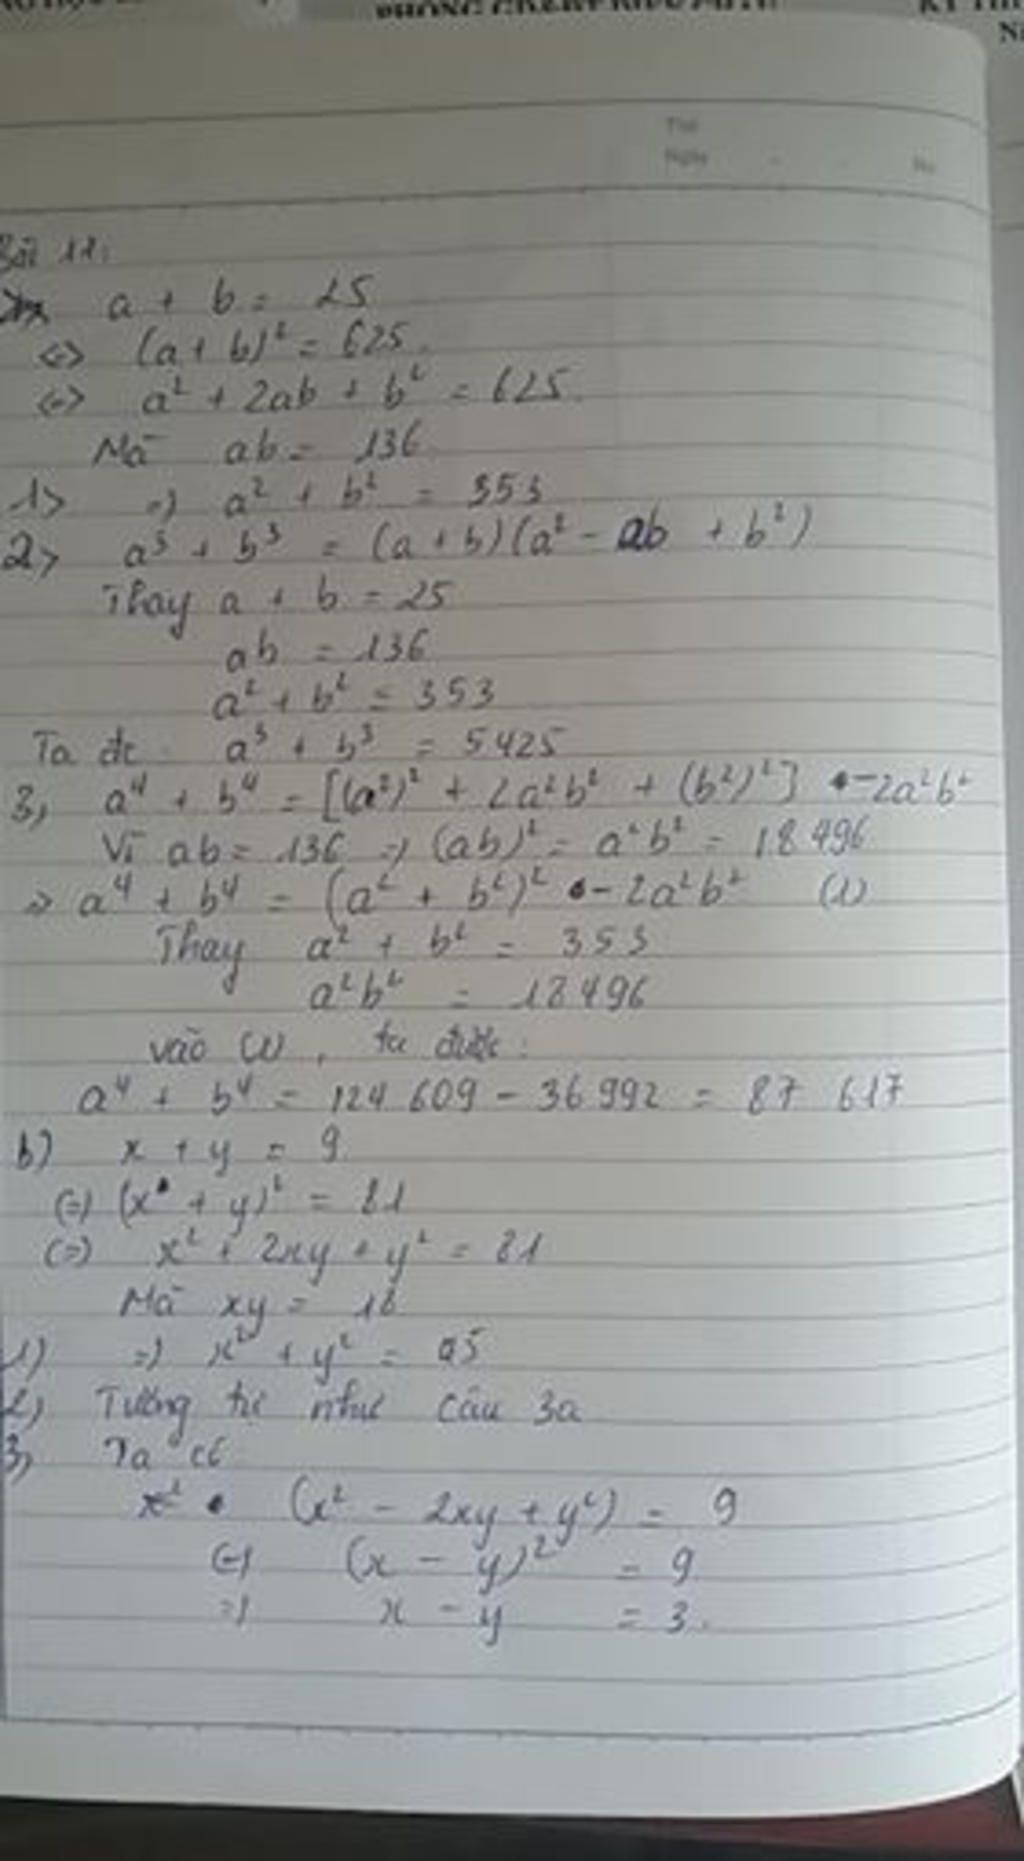 PHÒNG GD&ĐT
KỲ THI
Thứ
Ngày
No
Bài 11:
a + b = 25
<=> (a + b)² = 625
<=> a² + 2ab + b² = 625
Mà ab = 136
1> => a² + b² = 353
2> a³ + b³ = (a + b)(a² - ab + b²)
Thay a + b = 25
ab = 136
a² + b² = 353
Ta đc a³ + b³ = 5425
3, a⁴ + b⁴ = [(a²)² + 2a²b² + (b²)²] - 2a²b²
Vì ab = 136 => (ab)² = a²b² = 18 496
=> a⁴ + b⁴ = (a² + b²)² - 2a²b² (1)
Thay a² + b² = 353
a²b² = 18496
vào (1), ta được:
a⁴ + b⁴ = 124 609 - 36 992 = 87 617
b) x + y = 9
(=) (x + y)² = 81
(=) x² + 2xy + y² = 81
Mà xy = 18
1) => x² + y² = 45
2, Tương tự như câu 3a
3, Ta có
(x² - 2xy + y²) = 9
(=) (x - y)² = 9
=) x - y = 3.